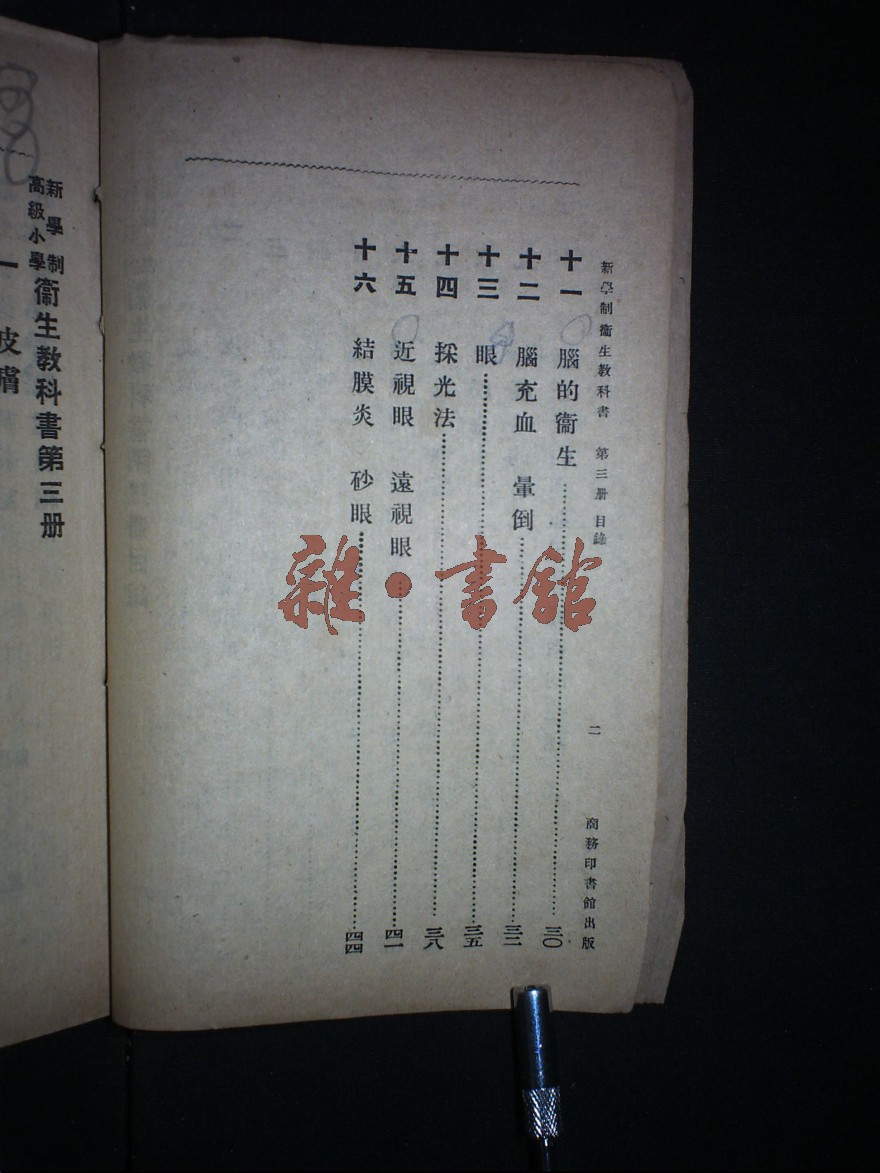 新學制衞生教科書 第三册 目錄 二 商務印書館出版
十一 腦的衞生 三〇
十二 腦充血 暈倒 三二
十三 眼 三五
十四 採光法 三八
十五 近視眼 遠視眼 四一
十六 結膜炎 砂眼 四四
新學制
高級小學
衞生教科書第三册
一 皮膚
雜·書館